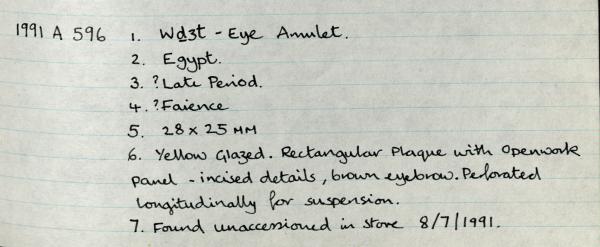 1991 A 596 1. Wḏ3t - Eye Amulet.
2. Egypt.
3. ?Late Period.
4. ?Faience
5. 28 x 25 MM
6. Yellow Glazed. Rectangular Plaque with Openwork
Panel - incised details, brown eyebrow. Perforated
longitudinally for suspension.
7. Found unaccessioned in store 8/7/1991.